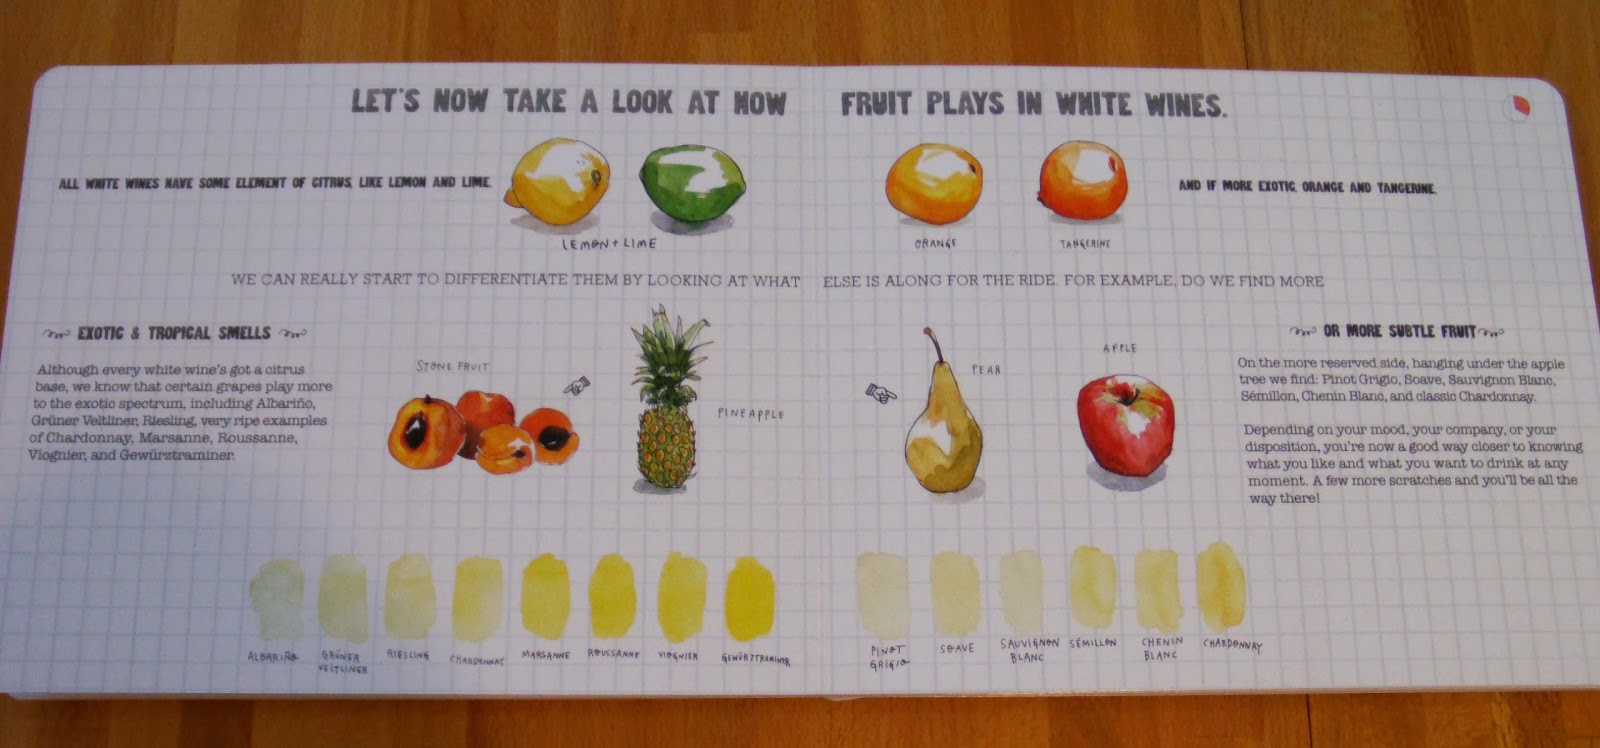 LET'S NOW TAKE A LOOK AT HOW FRUIT PLAYS IN WHITE WINES.
ALL WHITE WINES HAVE SOME ELEMENT OF CITRUS, LIKE LEMON AND LIME.
AND IF MORE EXOTIC, ORANGE AND TANGERINE.
LEMON + LIME
ORANGE
TANGERINE
WE CAN REALLY START TO DIFFERENTIATE THEM BY LOOKING AT WHAT ELSE IS ALONG FOR THE RIDE. FOR EXAMPLE, DO WE FIND MORE
EXOTIC & TROPICAL SMELLS
Although every white wine's got a citrus
base, we know that certain grapes play more
to the exotic spectrum, including Albariño,
Grüner Veltliner, Riesling, very ripe examples
of Chardonnay, Marsanne, Roussanne,
Viognier, and Gewürztraminer.
STONE FRUIT
PINEAPPLE
PEAR
APPLE
OR MORE SUBTLE FRUIT
On the more reserved side, hanging under the apple
tree we find: Pinot Grigio, Soave, Sauvignon Blanc,
Sémillon, Chenin Blanc, and classic Chardonnay.
Depending on your mood, your company, or your
disposition, you're now a good way closer to knowing
what you like and what you want to drink at any
moment. A few more scratches and you'll be all the
way there!
ALBARIÑO
GRÜNER
VELTLINER
RIESLING
CHARDONNAY
MARSANNE
ROUSSANNE
VIOGNIER
GEWÜRZTRAMINER
PINOT
GRIGIO
SOAVE
SAUVIGNON
BLANC
SÉMILLON
CHENIN
BLANC
CHARDONNAY